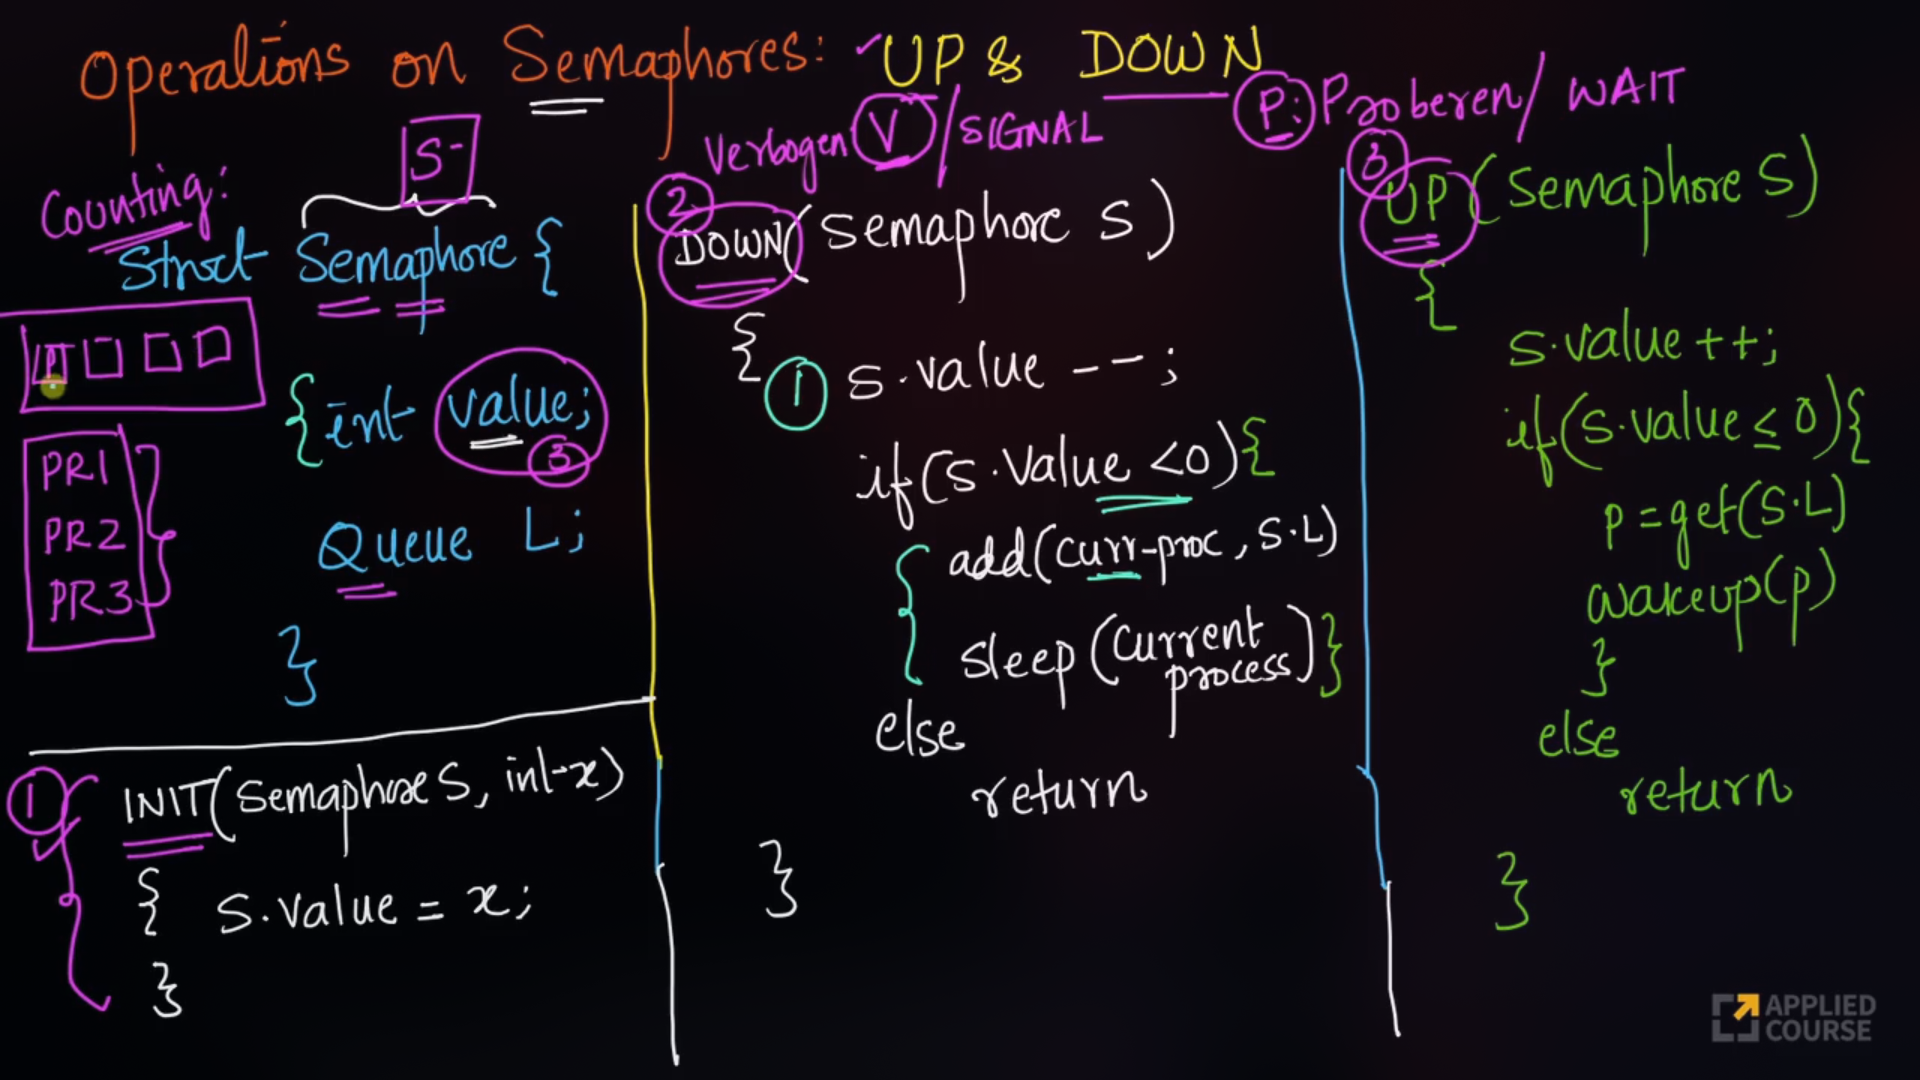 Operations on Semaphores: UP & DOWN
Verbogen V/SIGNAL
P: Proberen/ WAIT
Counting:
S
Struct Semaphore {
{int value;
3
Queue L;
}
PR1
PR2
PR3
1
INIT(Semaphore S, int x)
{ S.value = x;
}
2
DOWN(Semaphore S)
{
1 S.value --;
if(S.Value <0){
add(curr-proc, S.L)
sleep(Current process)}
else
return
}
3
UP(Semaphore S)
{
S.value ++;
if(S.value ≤ 0){
P = get(S.L)
wakeup(p)
}
else
return
}
APPLIED
COURSE